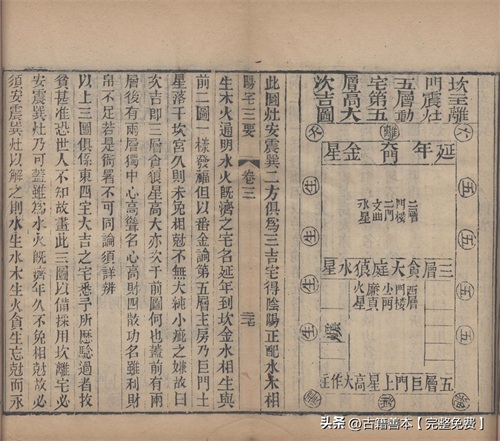 坎主離
門震灶
五層動
宅第五
層高大
次吉圖
離
延年
金星
二層
門樓
文曲
水星
五層巨門土星高大作主
坎
生
生
生
生
此圖灶安震巽二方俱爲三吉宅得陰陽正配水木相
生木火通明水火既濟之宅名延年到坎金水相生與
前二圖一樣發福但以番金論第五層主房乃巨門土
星落干坎宮久則未免相尅不無大純小疵之嫌故曰
次吉即三層貪狼星高大亦次于前圖何也蓋前有兩
層後有兩層獨中心高聳名心高財四散功名雖利財
帛不足若是衙署不可同論須詳辨
陽宅三要
卷三
以上三圖俱係東四宅大吉之宅悉予所歷驗過者故
貧甚准恐世人不知故畫此三圖以備採用坎離宅必
安震巽灶乃可蓋雖爲水火既濟年久不免相尅故必
須安震巽灶以解之則水生木木生火貪生忘尅而永
头条 @古籍善本【完整免费】